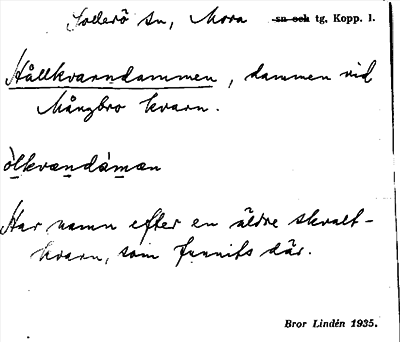 Sollerö sn, Mora sn och tg, Kopp. l.
Hållkvarndammen, dammen vid
Mångbro kvarn.
òlkvændàmæn
Har namn efter en äldre skvalt-
kvarn, som funnits där.
Bror Lindén 1935.